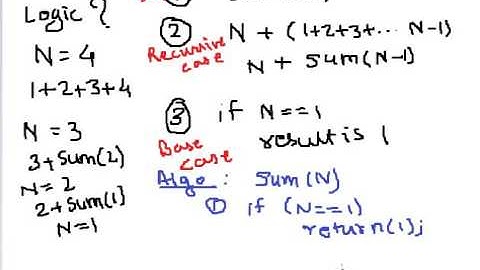 Logic ?
N = 4
1+2+3+4
N = 3
3+sum(2)
N = 2
2+sum(1)
N=1
② N + (1+2+3+... N-1)
Recursive case
N + sum(N-1)
③ if N==1
result is 1
Base case
Algo : sum(N)
① if (N==1)
return(1);